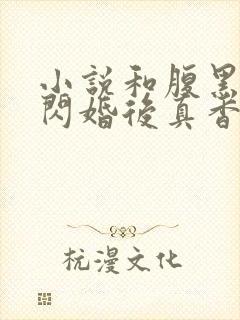 小説和腹黑
閃婚後真香
杭漫文化